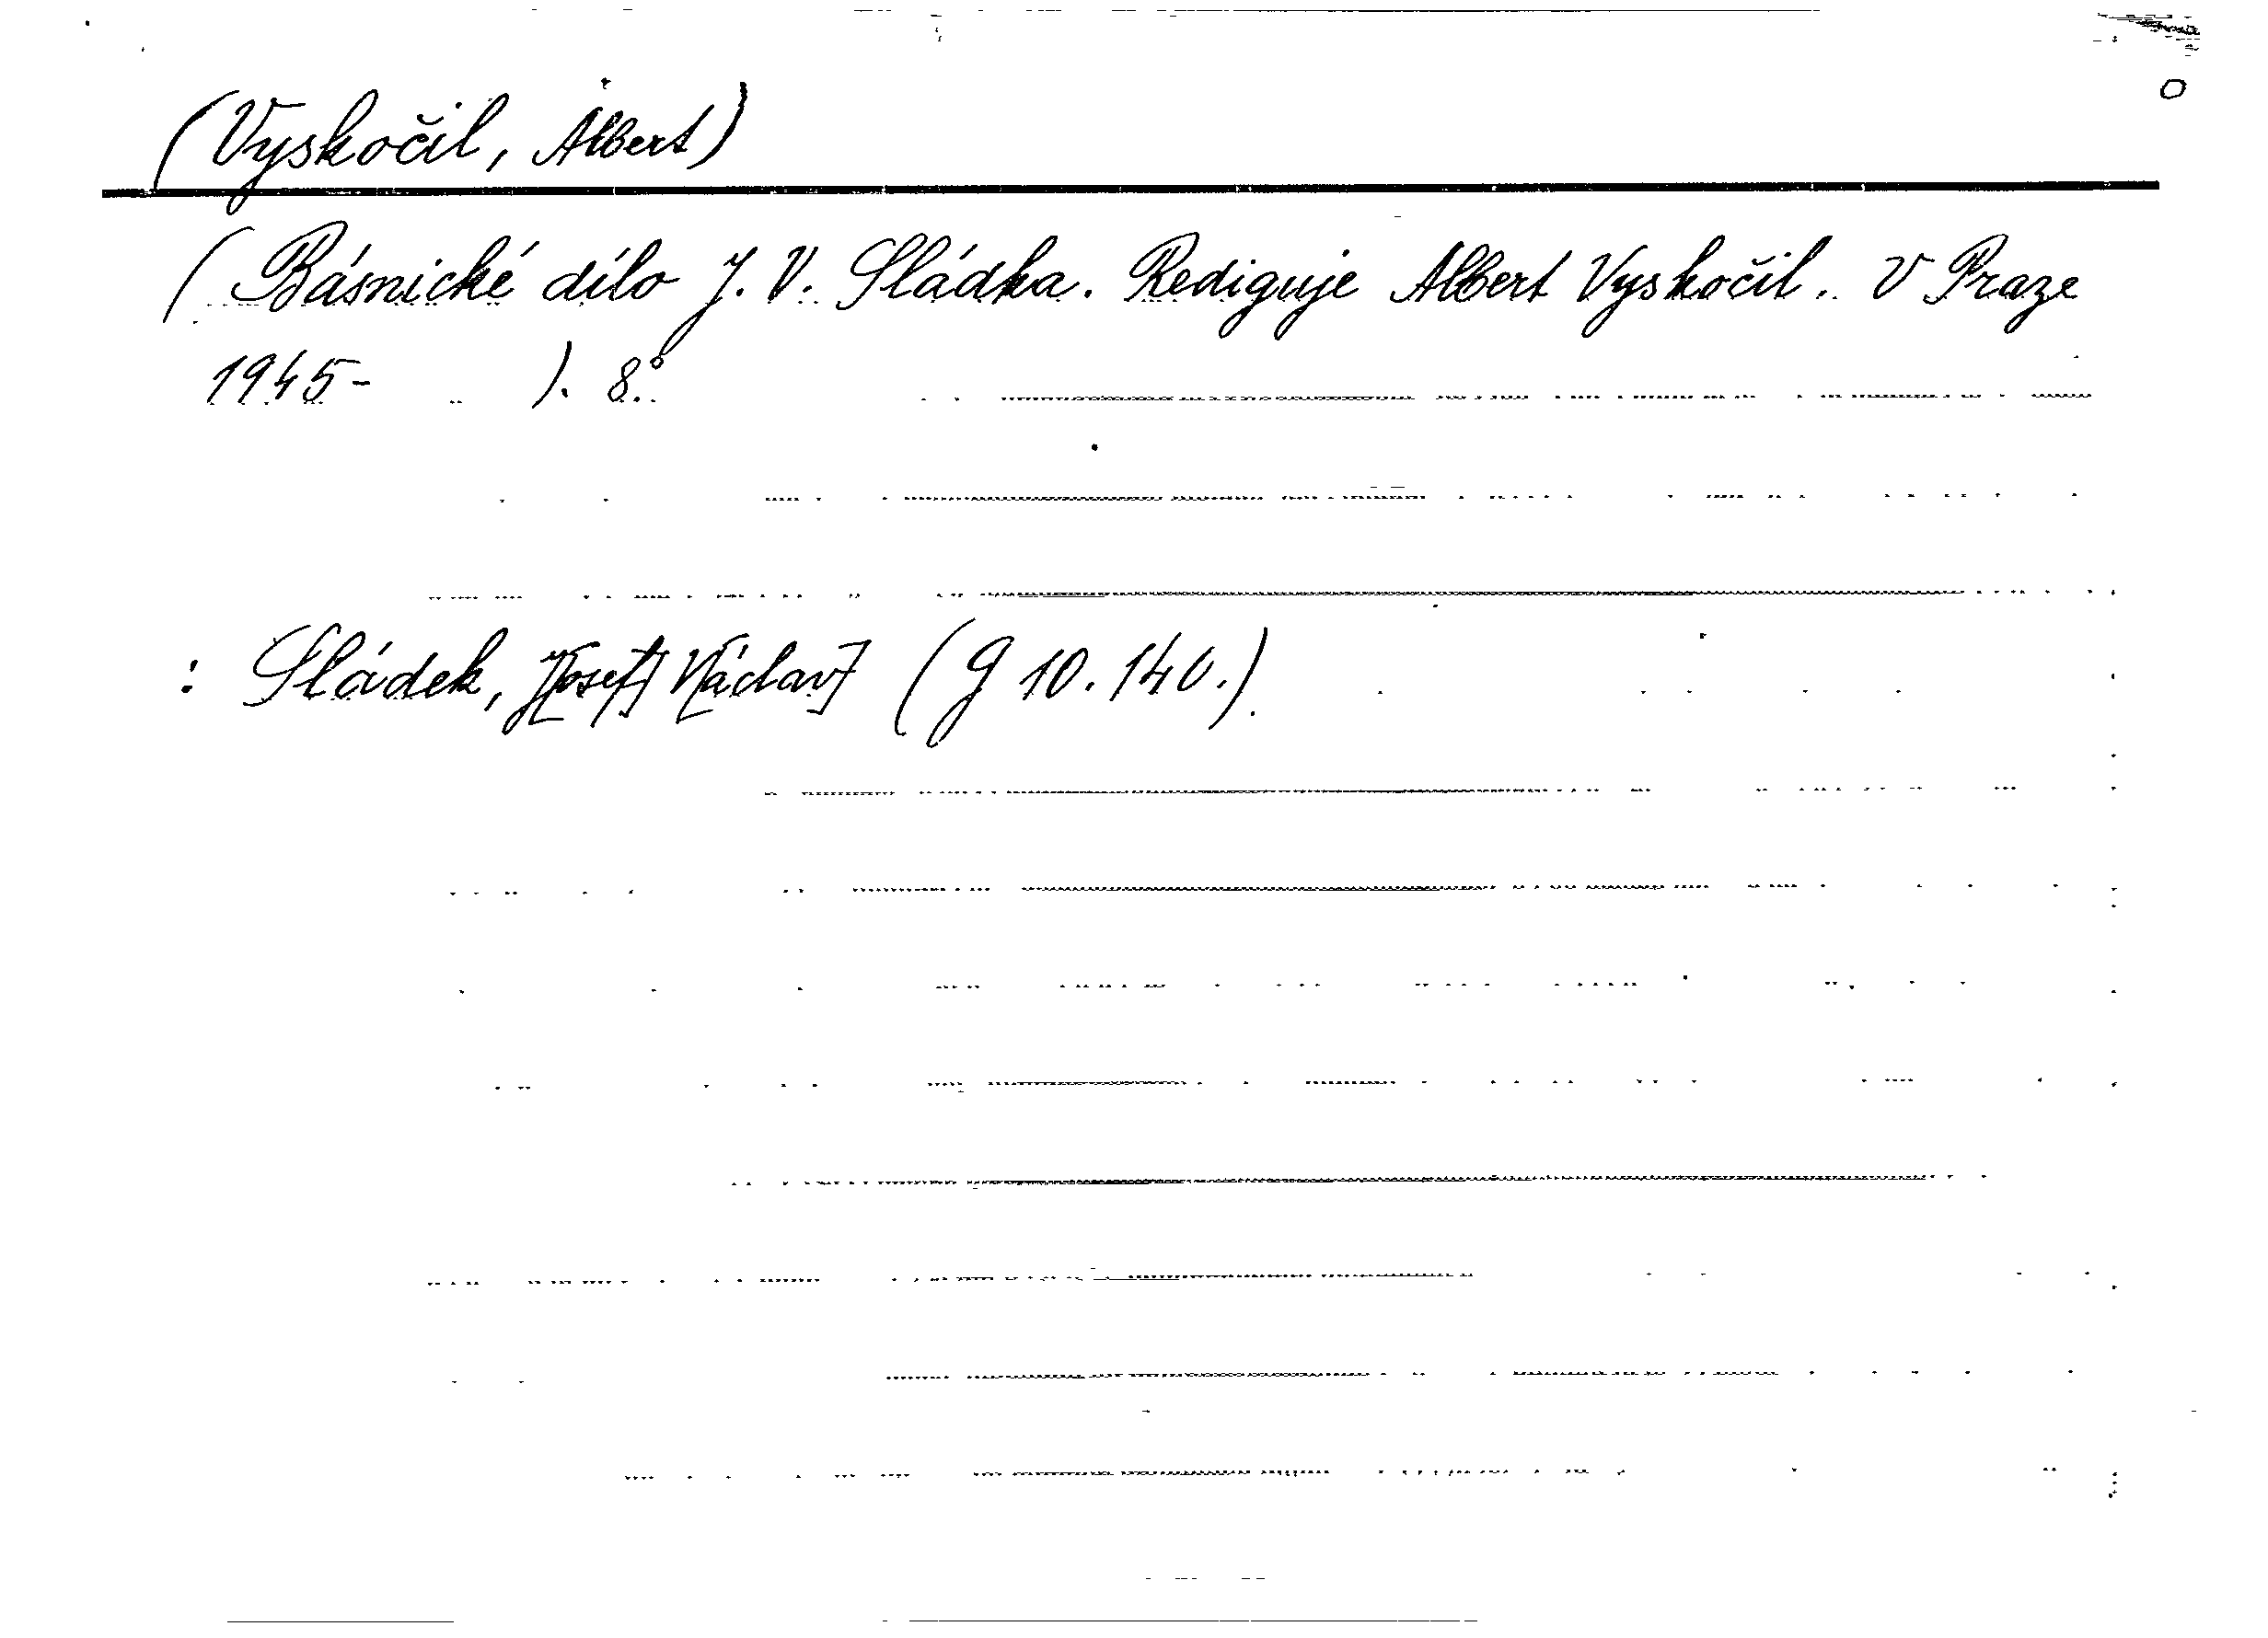 (Vyskočil, Albert)
(Básnické dílo J. V. Sládka. Rediguje Albert Vyskočil. V Praze
1945- ). 8.°
: Sládek, J[osef] V[áclav] (g 10.140.)